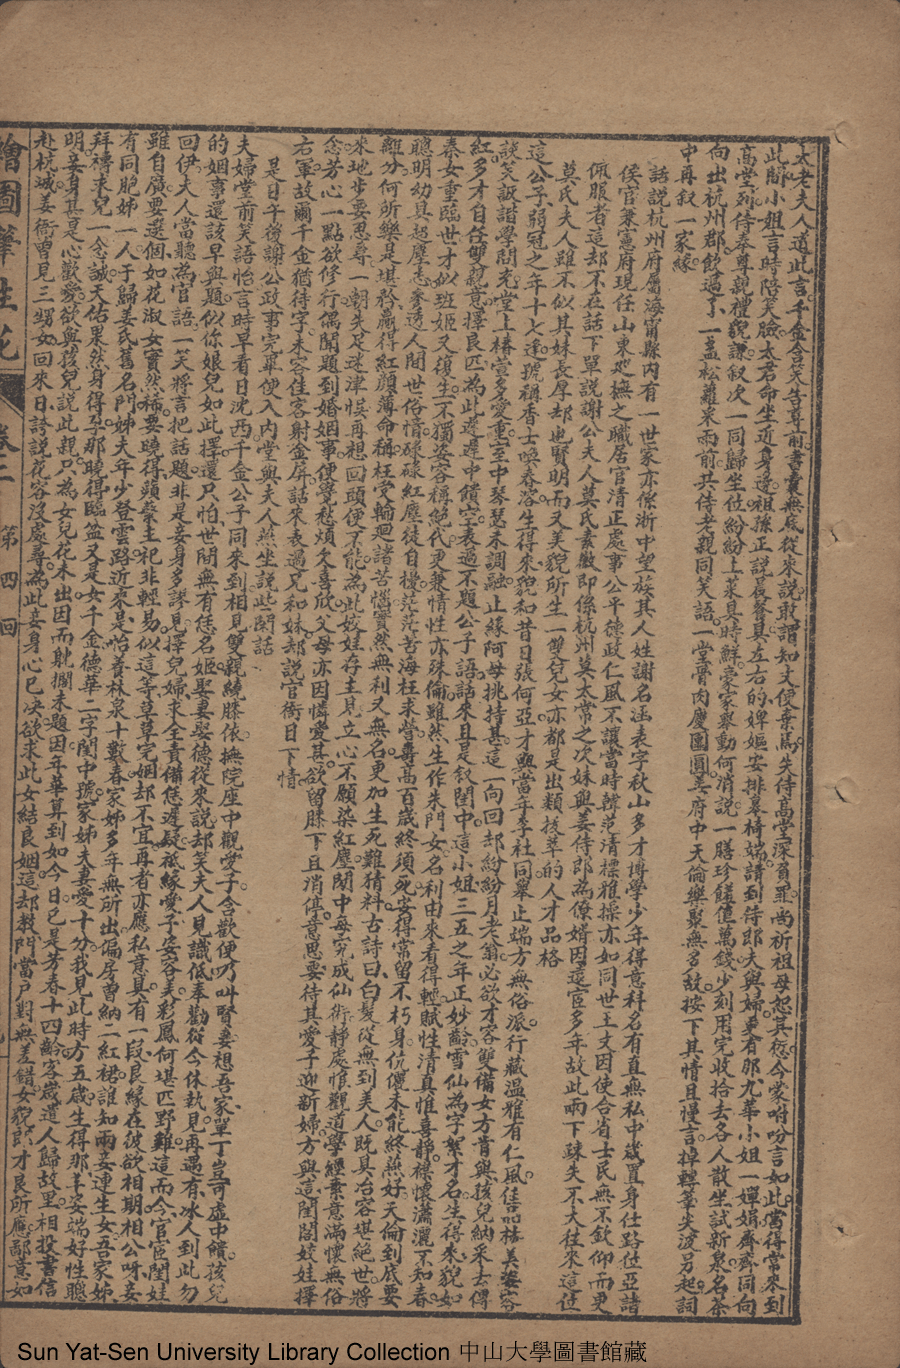 太老夫人道此言千金含笑告尊前書囊無底從來說敢謂知文便棄馮失侍高堂深負罪尚祈祖母恕其愆今蒙吩咐言如此當得常來到
此間小姐言時陪笑臉太君命坐近身邊祖孫正說晨餐具左右的婢嫗安排擧椅端請到侍郎夫與婦更看那九華小姐一嬋娟齊齊同向
高堂列侍奉尊親禮貌謙叙次一同歸坐位紛紛上菜具時鮮豪家舉動何消說一膳珍饈值萬錢少刻用完收拾去各人散坐試新泉名茶
向出杭州郡飲過了一盞松蘿采雨前共侍老親同笑語一堂骨肉慶團圓姜府中天倫樂聚無多故按下其情且慢言掉轉筆尖渡另起詞
中再叙一家緣
話說杭州府屬海甯縣內有一世家亦係浙中望族其人姓謝名涵表字秋山多才博學少年得意科名有直無私中歲置身仕路位亞諸
侯官兼憲府現任山東巡撫之職居官清正處事公平德政仁風不讓當時韓范清標雅操亦如同世王文因使合省士民無不欽仰而更
佩服者這却不在話下單說謝公夫人莫氏素徽即係杭州莫太常之次妹與姜侍郎為僚婿因這宦多年故此兩下疎失不大往來這位
莫氏夫人雖不似其妹長厚却也賢明而又美貌所生一雙兒女亦都是出類拔萃的人才品格
這公子弱冠之年十七逢號稱香士喚春溶生得來貌和昔日張何亞才與當年李杜同舉止端方無俗派行藏溫雅有仁風佳品格美姿容
談笑詼諧學問充堂上椿萱多愛重至中琴瑟未調融止緣阿母挑持甚這一向回却紛紛月老翁必欲才容雙備女方肯與孩兒納采去得
紅多才自任雙親意擇良匹為此遲遲中饋空表過不題公子語話來且是叙閨中這小姐三五之年正妙齡雪仙為字絮才名生得來貌如
秦女重臨世才似班姬又復生不獨姿容稱絕代更兼情性亦殊倫雖然生作朱門女名利由來看得輕賦性清真惟喜靜襟懷瀟灑不知春
聰明幼具超塵志參透人間世俗情碌碌紅塵徒自擾茫茫苦海枉求營壽高百歲終須死安得常留不朽身伉儷未能終燕好天倫到底要
離分何所樂是堪矜贏得紅顏薄命稱枉受輪迴諸苦惱實然無利又無名更加生死難猜料古詩曰白髮從無到美人既具冶容堪絕世將
來地步要思尋一朝失足迷津悞再想回頭便不能為此嬌娃存主見立心不願染紅塵閨中每究成仙術靜處惟觀道學經素意滿懷無俗
念芳心一點欲修行偶聞題到婚姻事便覺愁煩欠喜欣父母亦因憐愛甚欲留膝下且消停意思要待其愛子迎新婦方與這閨閣姣娃擇
右軍故爾千金猶待字未容佳客射金屏話來表過兄和妹却說官衙日下情
是日午後謝公政事完畢便入內堂與夫人燕坐說些閒話
夫婦堂前笑語怡言時早看日沈西千金公子同來到相見雙親繞膝依撫院座中觀愛子含歡便乃叫賢妻想吾家單丁豈可虛中饋孩兒
的姻事還該早與題似你娘兒如此擇還只怕世間無有恁名姬娶妻娶德從來說却笑夫人見識低奉勸從今休執見再遇有冰人到此勿
回伊夫人當聽為官語一笑將言把話題非是妾身多謬見擇兒婦求全責備恁遲疑祗緣愛子姿容美彩鳳何堪匹野雞這而今官宦閨娃
雖自廣要選個如花淑女實然稀要曉得蘋蘩主祀非輕易似這等草草完姻却不宜再者亦應私意具有一段良緣在彼欲相期相公呀妾
有同胞姊一人于歸姜氏舊名門姊夫年少登雲路近來是怡養林泉十數春家姊多年無所出偏房曾納二紅裙誰知兩妾連生女吾家姊
拜禱求兒一念誠天佑果然身得孕那曉得臨盆又是女千金德華二字閨中號家姊夫妻愛十分我見此時方五歲生得那丰姿端好性聰
明妾身甚是心歡愛欲與孩兒說此親只為女兒花未出因而躭擱未題因年華算到如今日已是芳春十四齡客歲遣人歸故里相投書信
赴杭城姜衙曾見三甥女回來日誇說花容沒處尋為此妾身心已決欲求此女結良姻這却教門當戶對無差錯女貌郎才良所應鄙意如
繪圖筆生花
卷二
第四回
Sun Yat-Sen University Library Collection 中山大學圖書館藏